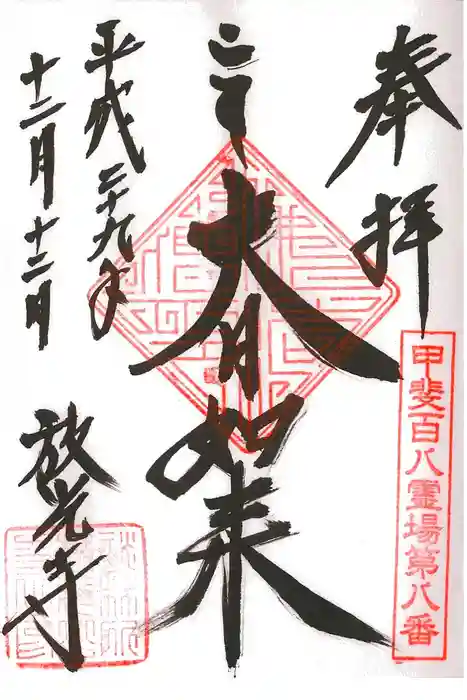 奉拝
甲斐百八靈場第八番
大日如来
平成二十九年
十二月十二日
放光寺